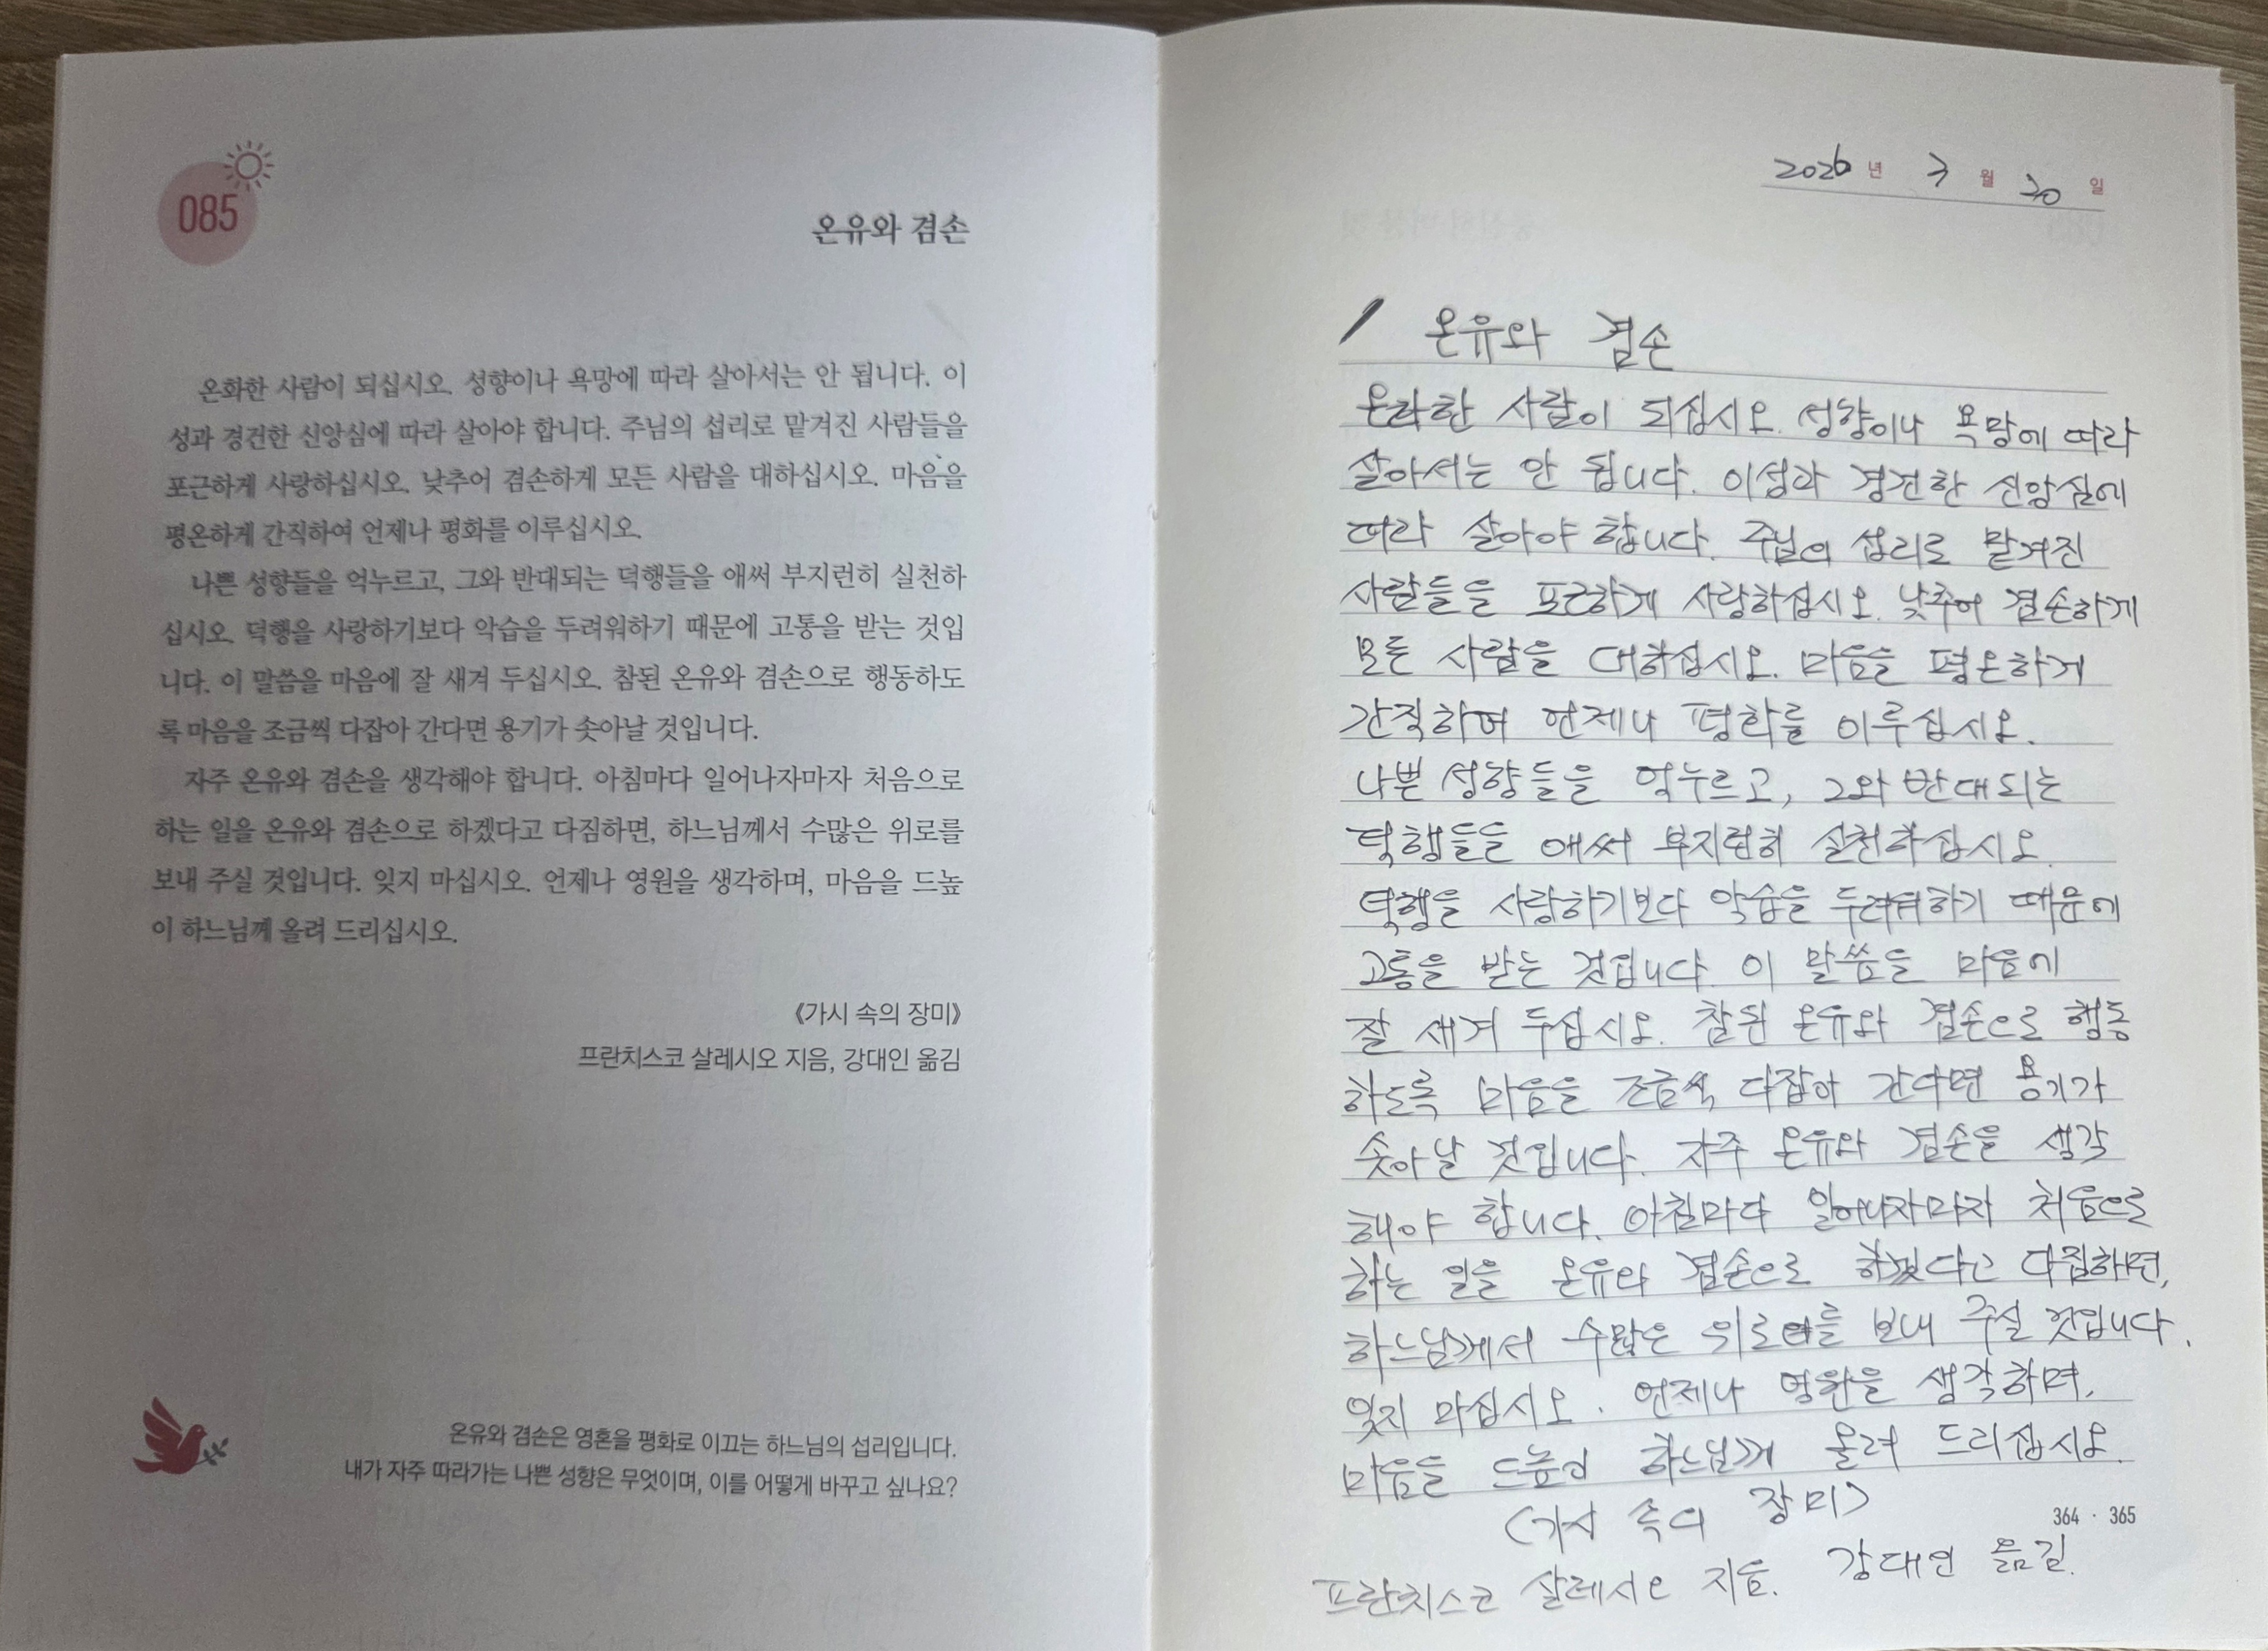 085
온유와 겸손
온화한 사람이 되십시오. 성향이나 욕망에 따라 살아서는 안 됩니다. 이
성과 경건한 신앙심에 따라 살아야 합니다. 주님의 섭리로 맡겨진 사람들을
포근하게 사랑하십시오. 낮추어 겸손하게 모든 사람을 대하십시오. 마음을
평온하게 간직하여 언제나 평화를 이루십시오.
나쁜 성향들을 억누르고, 그와 반대되는 덕행들을 애써 부지런히 실천하
십시오. 덕행을 사랑하기보다 악습을 두려워하기 때문에 고통을 받는 것입
니다. 이 말씀을 마음에 잘 새겨 두십시오. 참된 온유와 겸손으로 행동하도
록 마음을 조금씩 다잡아 간다면 용기가 솟아날 것입니다.
자주 온유와 겸손을 생각해야 합니다. 아침마다 일어나자마자 처음으로
하는 일을 온유와 겸손으로 하겠다고 다짐하면, 하느님께서 수많은 위로를
보내 주실 것입니다. 잊지 마십시오. 언제나 영원을 생각하며, 마음을 드높
이 하느님께 올려 드리십시오.
《가시 속의 장미》
프란치스코 살레시오 지음, 강대인 옮김
온유와 겸손은 영혼을 평화로 이끄는 하느님의 섭리입니다.
내가 자주 따라가는 나쁜 성향은 무엇이며, 이를 어떻게 바꾸고 싶나요?
2026년 3월 20일
온유와 겸손
온화한 사람이 되십시오. 성향이나 욕망에 따라
살아서는 안 됩니다. 이성과 경건한 신앙심에
따라 살아야 합니다. 주님의 섭리로 맡겨진
사람들을 포근하게 사랑하십시오. 낮추어 겸손하게
모든 사람을 대하십시오. 마음을 평온하게
간직하여 언제나 평화를 이루십시오.
나쁜 성향들을 억누르고, 그와 반대되는
덕행들을 애써 부지런히 실천하십시오.
덕행을 사랑하기보다 악습을 두려워하기 때문에
고통을 받는 것입니다. 이 말씀을 마음에
잘 새겨 두십시오. 참된 온유와 겸손으로 행동
하도록 마음을 조금씩 다잡아 간다면 용기가
솟아날 것입니다. 자주 온유와 겸손을 생각
해야 합니다. 아침마다 일어나자마자 처음으로
하는 일을 온유와 겸손으로 하겠다고 다짐하면,
하느님께서 수많은 위로를 보내 주실 것입니다.
잊지 마십시오. 언제나 영원을 생각하며,
마음을 드높이 하느님께 올려 드리십시오.
〈가시 속의 장미〉
364 · 365
프란치스코 살레시오 지음. 강대인 옮김.